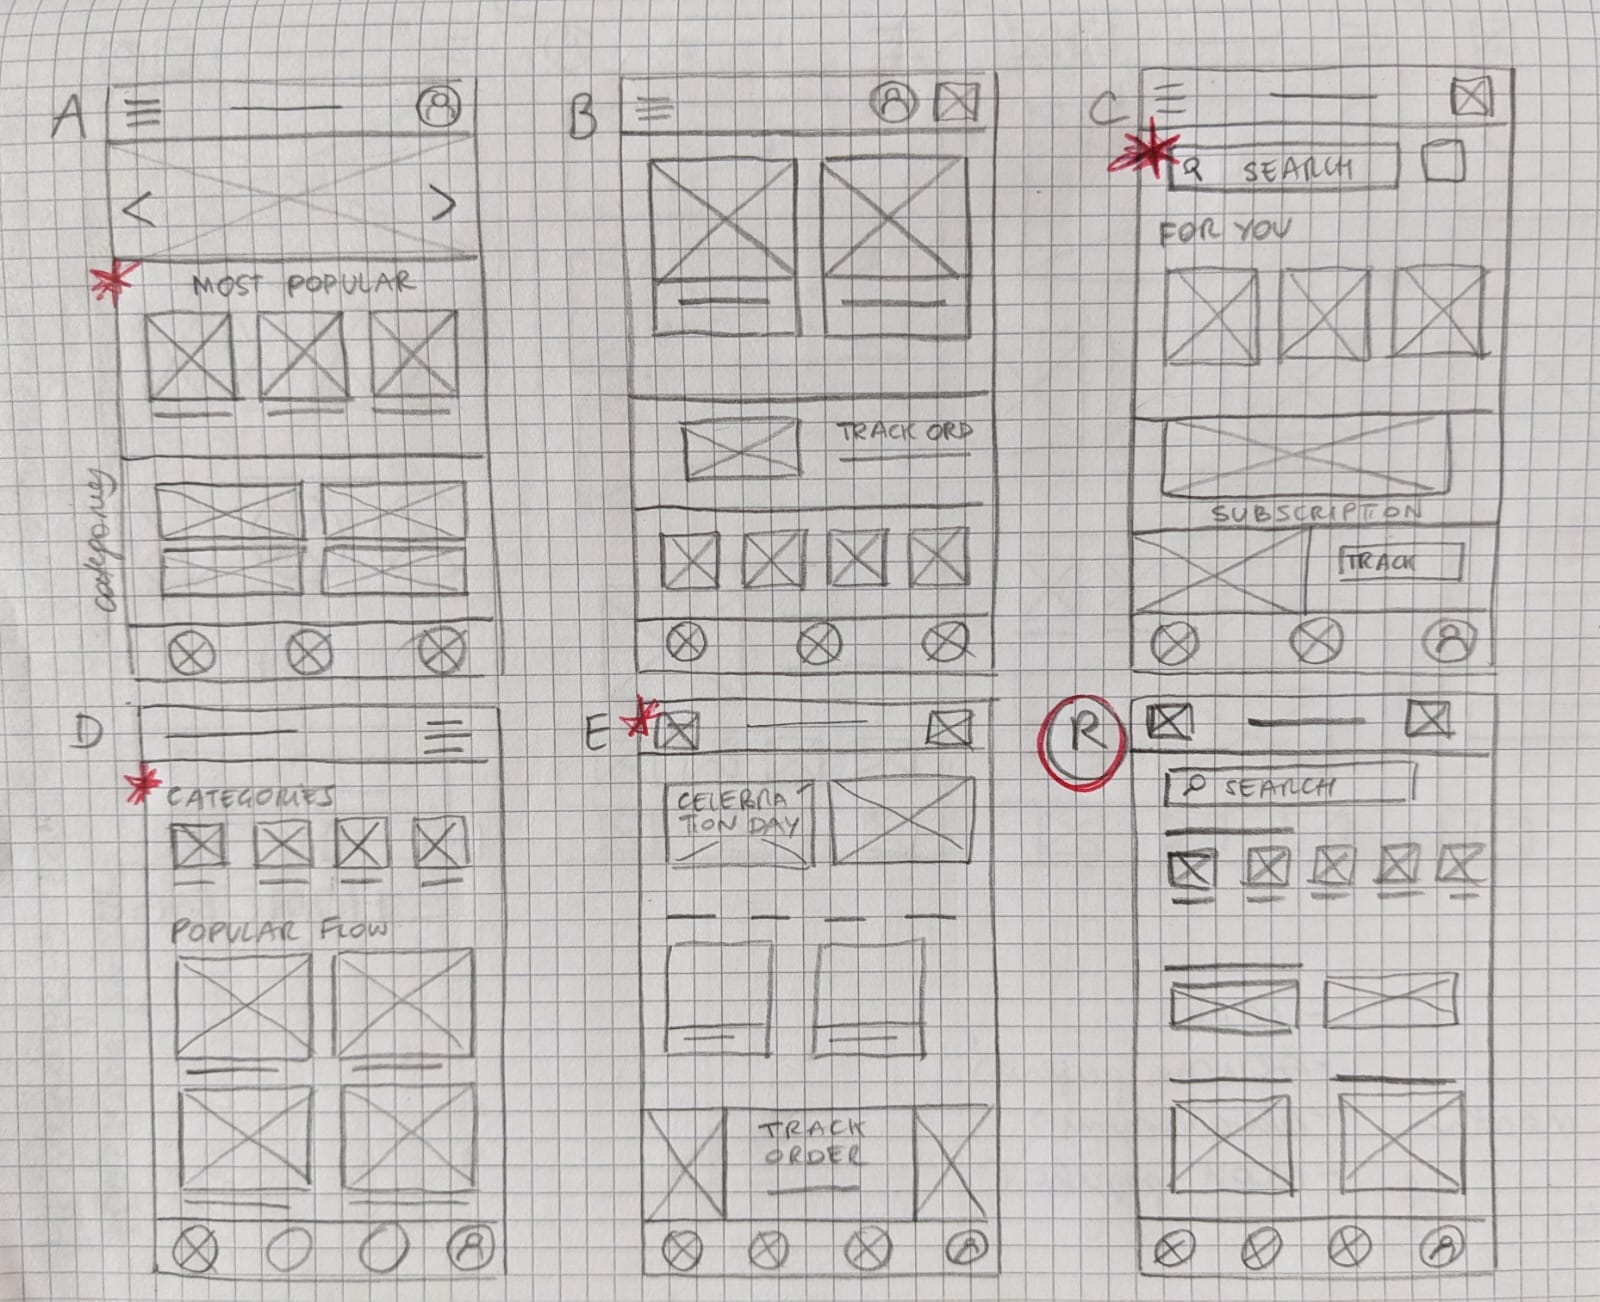 A
MOST POPULAR
categories
B
TRACK ORD
C
SEARCH
FOR YOU
SUBSCRIPTION
TRACK
D
CATEGORIES
POPULAR FLOW
E
CELEBRA
TION DAY
TRACK
ORDER
R
SEARCH